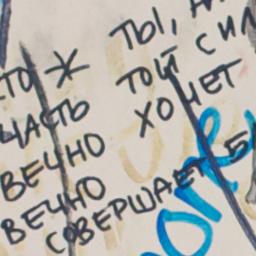 ТО Ж ТЫ,
ЧАСТЬ ТОЙ СИЛ
ВЕЧНО ХОЧЕТ
ВЕЧНО
СОВЕРШАЕТ